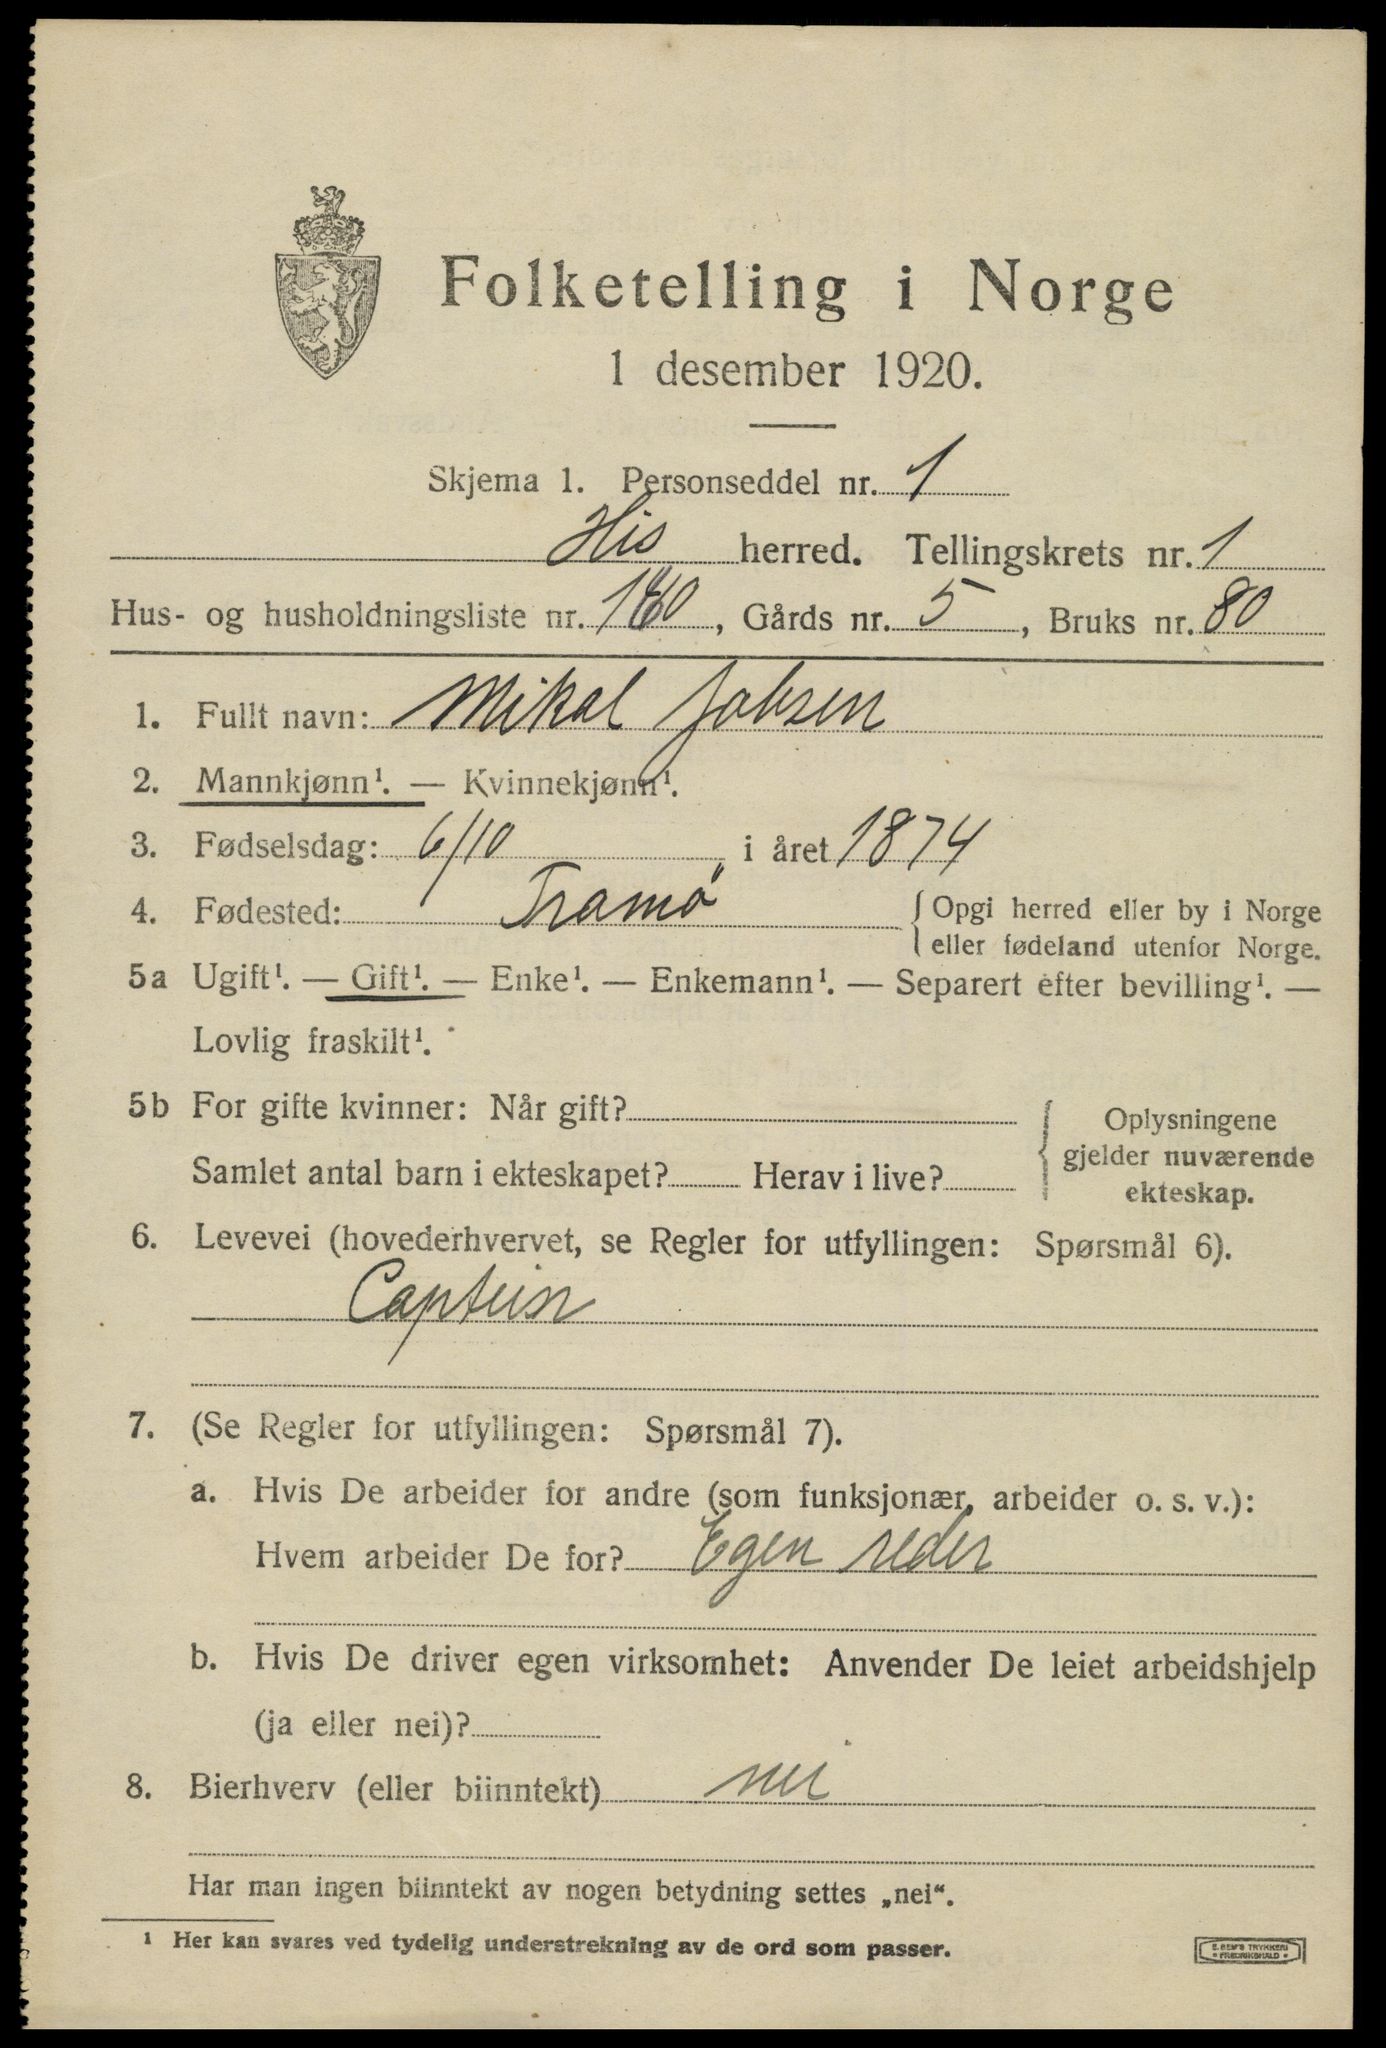 Folketelling i Norge
1 desember 1920.
Skjema 1. Personseddel nr. 1
His herred. Tellingskrets nr. 1
Hus- og husholdningsliste nr. , Gårds nr. 5, Bruks nr. 80
1. Fullt navn: Mikal Jabsen
2. Mannkjønn¹. — Kvinnekjønn¹.
3. Fødselsdag: 6/10 i året 1874
4. Fødested: Tramø { Opgi herred eller by i Norge
eller fødeland utenfor Norge.
5a Ugift¹. — Gift¹. — Enke¹. — Enkemann¹. — Separert efter bevilling¹. —
Lovlig fraskilt¹.
5b For gifte kvinner: Når gift?
Samlet antal barn i ekteskapet? Herav i live?
{ Oplysningene
gjelder nuværende
ekteskap.
6. Levevei (hovederhvervet, se Regler for utfyllingen: Spørsmål 6).
Captein
7. (Se Regler for utfyllingen: Spørsmål 7).
a. Hvis De arbeider for andre (som funksjonær, arbeider o. s. v.):
Hvem arbeider De for? Egen reder
b. Hvis De driver egen virksomhet: Anvender De leiet arbeidshjelp
(ja eller nei)?
8. Bierhverv (eller biinntekt) nei
Har man ingen biinntekt av nogen betydning settes „nei“.
¹ Her kan svares ved tydelig understrekning av de ord som passer.
E. SEM'S TRYKKERI
* FREDRIKSHALD *